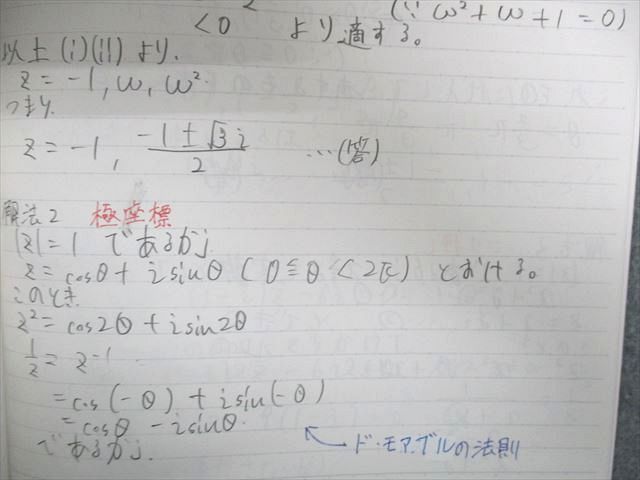 <0 より適する。 (∵ ω²+ω+1=0)
以上(i)(ii)より.
z = -1, ω, ω².
つまり.
z = -1, (-1±√3i)/2 …(答)
解法2 極座標
|z|=1 であるから
z = cosθ + i sinθ (0≦θ<2π) とおける。
このとき.
z² = cos2θ + i sin2θ
1/z = z⁻¹
= cos(-θ) + i sin(-θ)
= cosθ - i sinθ.
であるから. ド・モアブルの法則